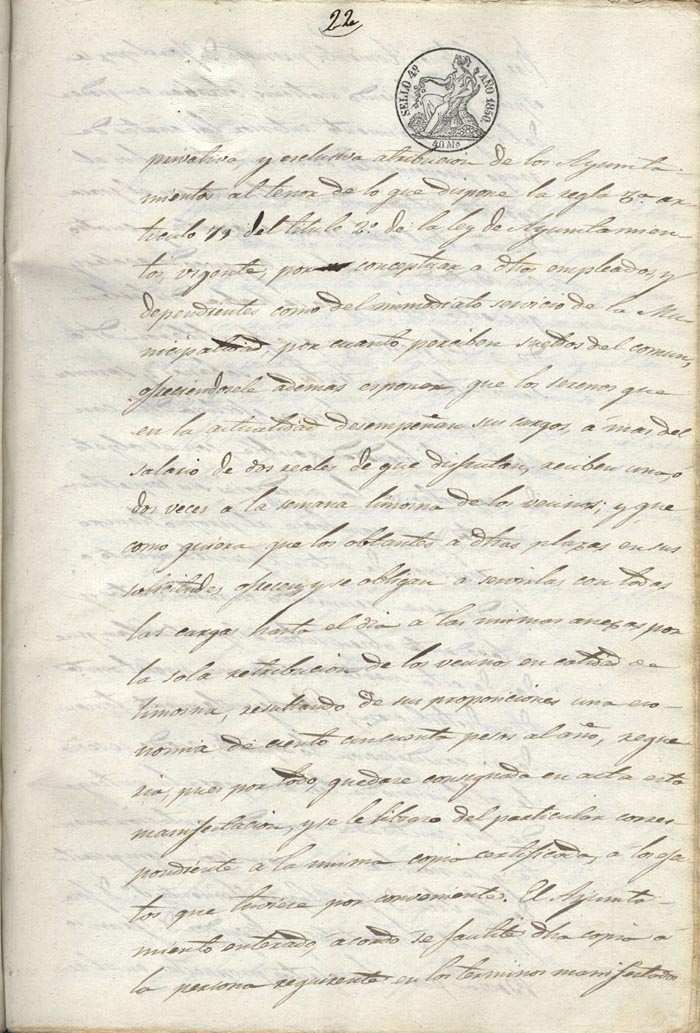 22
SELLO 4º AÑO 1850.
40 Ms
privativa, y esclusiva atribucion de los Ayunta
mientos al tenor de lo que dispone la regla 3ª ar
ticulo 79 del titulo 2º de la ley de Ayuntamien
tos, vigente, por conceptuar a dhos empleados, y
dependientes como del immediato servicio de la Mu
nicipalidad por cuanto perciben sueldos del comun,
ofreciendosele ademas esponer que los serenos que
en la actualidad desempeñan sus cargos, a mas del
salario de dos reales de que disfrutan, reciben una, o
dos veces a la semana limosna de los vecinos; y que
como quiera que los obtantes a dhas plazas en sus
solicitudes ofrecen, y se obligan a servirlas con todas
las cargas hasta el dia a las mismas anexas por
la sola retribucion de los vecinos en calidad de
limosna, resultando de sus proposiciones una eco-
nomia de ciento cincuenta pesos al año, reque
ria, pues por todo quedase consignada en acta esta
manifestacion, y se le librara del particular corres
pondiente a la misma copia certificada, a los efec
tos que tuviere por conveniente. El Ayunta
miento enterado, acordó se facilite dha copia á
la persona requirente en los terminos manifestados